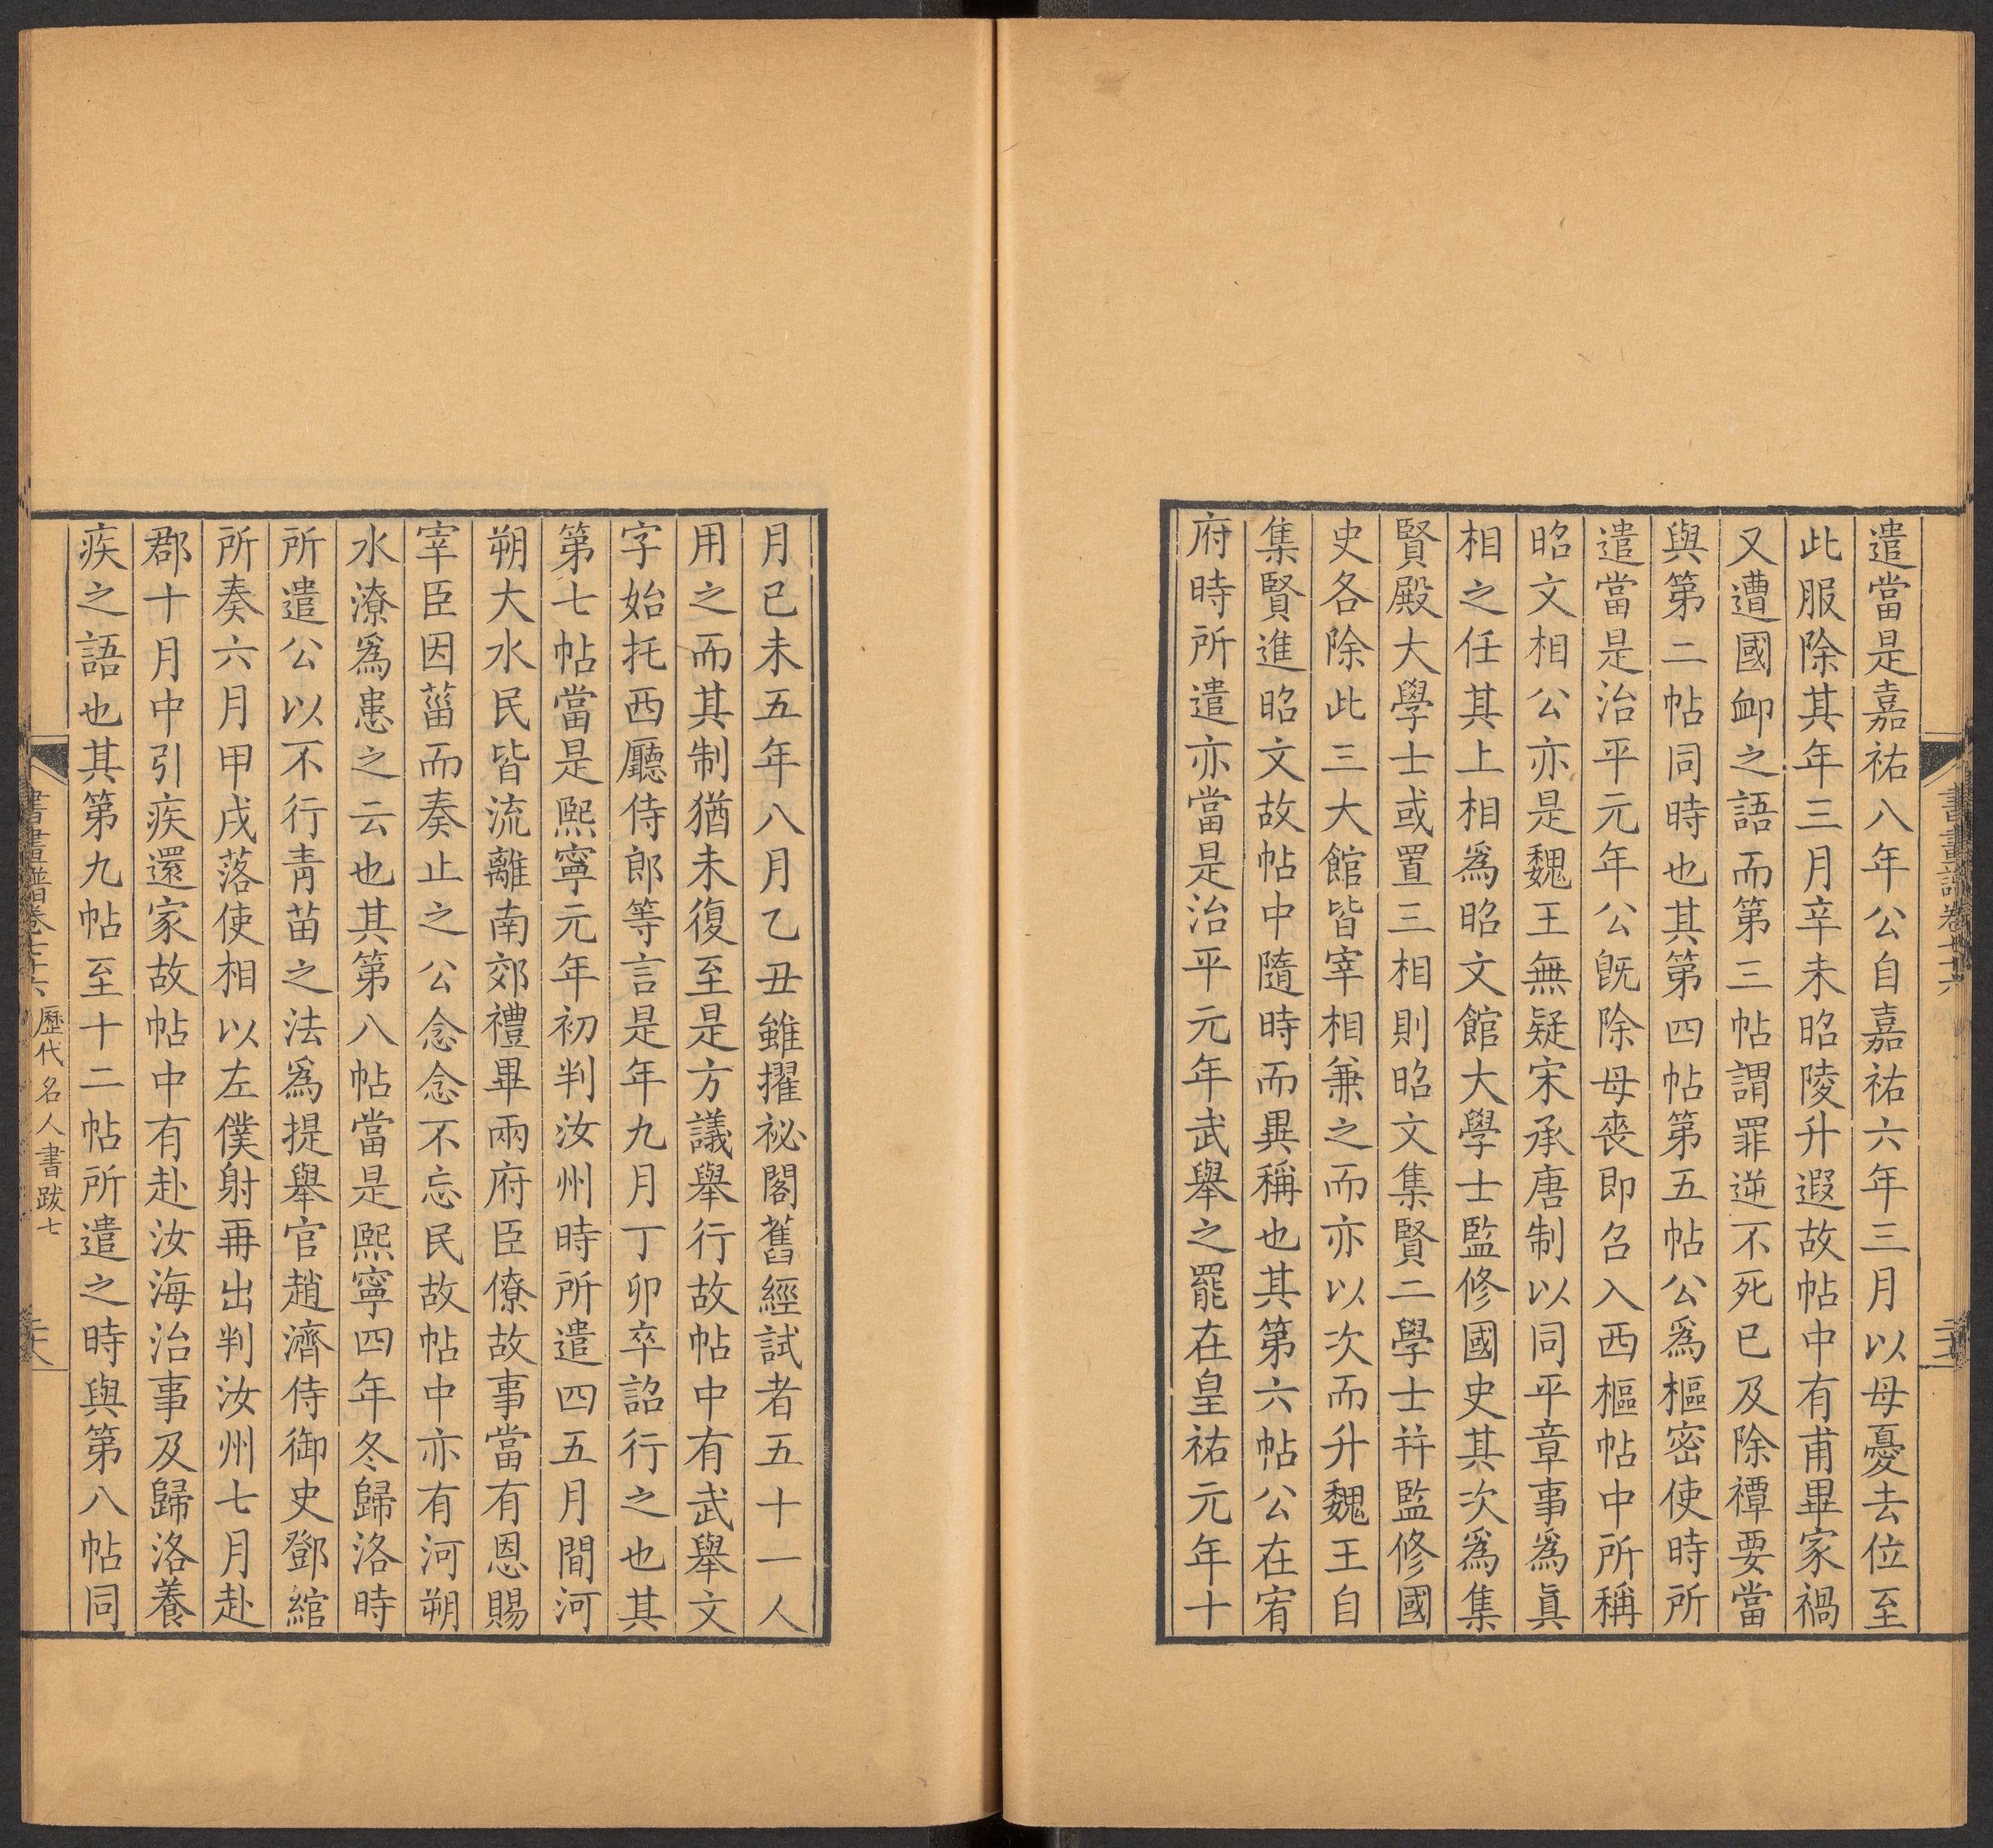 遣當是嘉祐八年公自嘉祐六年三月以母憂去位至
此服除其年三月辛未昭陵升遐故帖中有甫畢家禍
又遭國衈之語而第三帖謂罪逆不死已及除禫要當
與第二帖同時也其第四帖第五帖公爲樞密使時所
遣當是治平元年公旣除母喪即召入西樞帖中所稱
昭文相公亦是魏王無疑宋承唐制以同平章事爲眞
相之任其上相爲昭文館大學士監修國史其次爲集
賢殿大學士或置三相則昭文集賢二學士并監修國
史各除此三大館皆宰相兼之而亦以次而升魏王自
集賢進昭文故帖中隨時而異稱也其第六帖公在宥
府時所遣亦當是治平元年武舉之罷在皇祐元年十
月已未五年八月乙丑雖擢祕閣舊經試者五十一人
用之而其制猶未復至是方議舉行故帖中有武舉文
字始托西廳侍郎等言是年九月丁卯卒詔行之也其
第七帖當是熙寧元年初判汝州時所遣四五月間河
朔大水民皆流離南郊禮畢兩府臣僚故事當有恩賜
宰臣因菑而奏止之公念念不忘民故帖中亦有河朔
水潦爲患之云也其第八帖當是熙寧四年冬歸洛時
所遣公以不行青苗之法爲提舉官趙濟侍御史鄧綰
所奏六月甲戌落使相以左僕射再出判汝州七月赴
郡十月中引疾還家故帖中有赴汝海治事及歸洛養
疾之語也其第九帖至十二帖所遣之時與第八帖同
書畫譜卷七十六 歷代名人書跋七